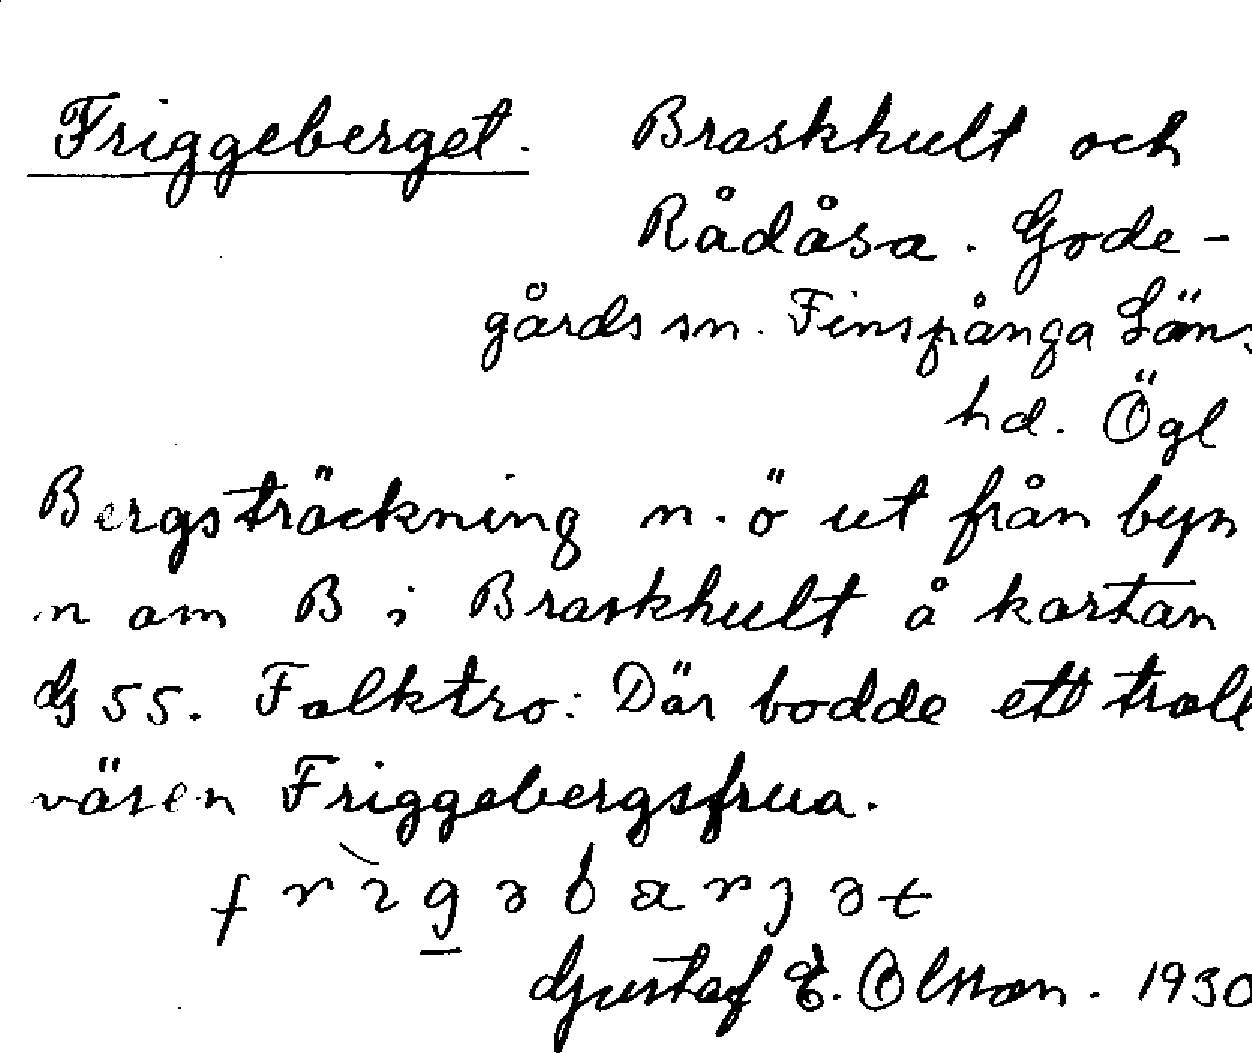 Friggeberget. Braskhult och
Rådåsa. Gode-
gårds sn. Finspånga Läns
hd. Ögl
Bergsträckning n.ö ut från byn
n om B i Braskhult å kartan
G 55. Folktro: Där bodde ett troll
väsen Friggebergsfrua.
Gustaf E. Olsson. 1930